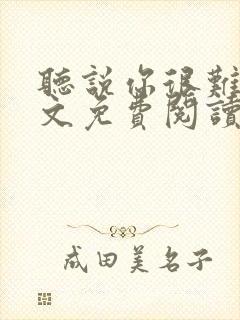 聽說你很難
文免費閱讀
成田美名子